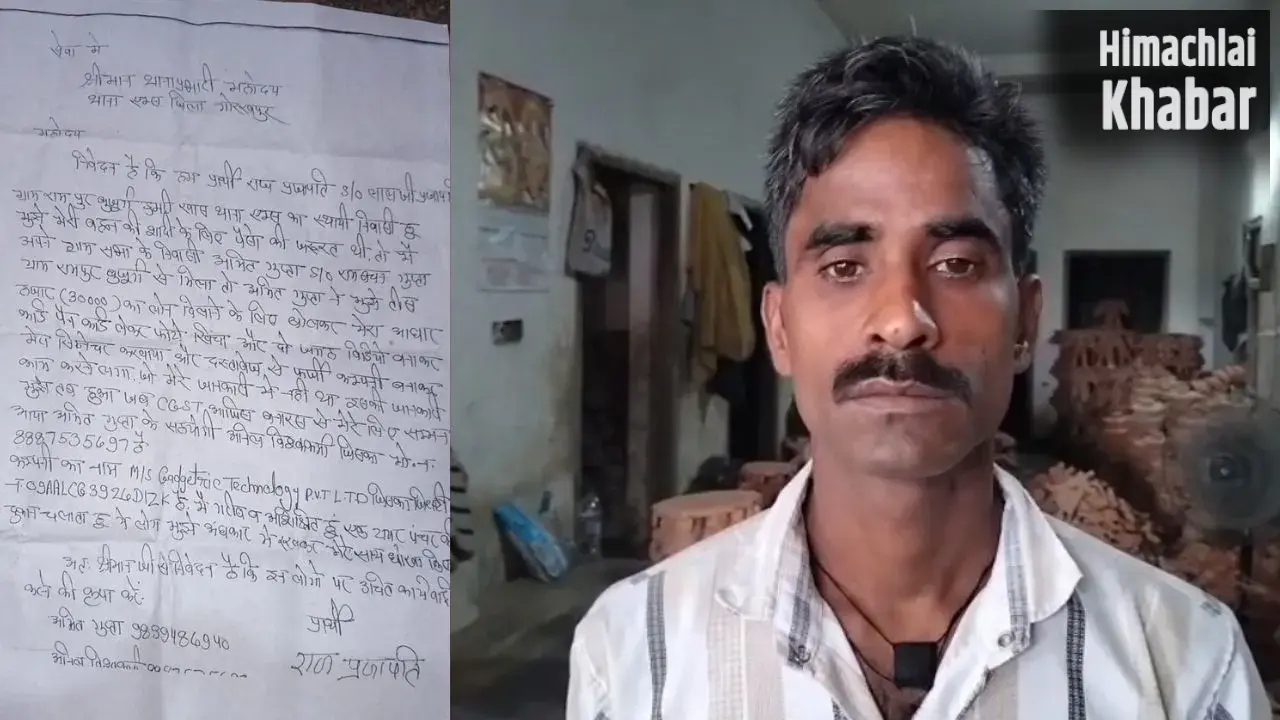 सेवा में
श्रीमान थानाप्रभारी महोदय
थाना एम्स जिला गोरखपुर
महोदय
निवेदन है कि हम प्रार्थी राज प्रजापति S/O लाल जी प्रजापति
ग्राम राम पुर बुढ़ानी डुमरी खास थाना एम्स का स्थायी निवासी हू
मुझे मेरी बहन की शादी के लिए पैसा की जरूरत थी तो मै
अपने ग्राम सभा के निवासी अमित गुप्ता S/O रामबचन गुप्ता
ग्राम रामपुर से मिला तो अमित गुप्ता ने मुझे तीस
हजार (30000) का लोन दिलाने के लिए बोलकर मेरा आधार
कार्ड पैन कार्ड लेकर फोटो खिंचा और दो जगह विडियो बनाकर
मेरा सिग्नेचर करवाया और दस्तावेज से फर्जी कम्पनी बनाकर
काम करने लगा जो मेरे जानकारी मे नही था इसकी जानकारी
मुझे तब हुआ जब CGST आफिस बनारस से मेरे लिए सम्मन
आया अमित गुप्ता के सहयोगी अनिल विश्वकर्मा जिसका मो. न.
8887535697 है
कम्पनी का नाम M/S Gadgetric Technology P.V.T L.T.D जिसका
T09AALCG3926D1ZK है, मै गरीब व अशिक्षित हूं एक पंचर की
दुकान चलाता हू ये लोग मुझे अंधकार मे रखकर मेरे साथ धोखा किए
अतः श्रीमान जी से निवेदन है कि इन लोगो पर उचित कार्यवाही
करने की कृपा करें.
अमित गुप्ता 9839486940
प्रार्थी
अनिल विश्वकर्मा
राज प्रजापति
Himachlai
Khabar